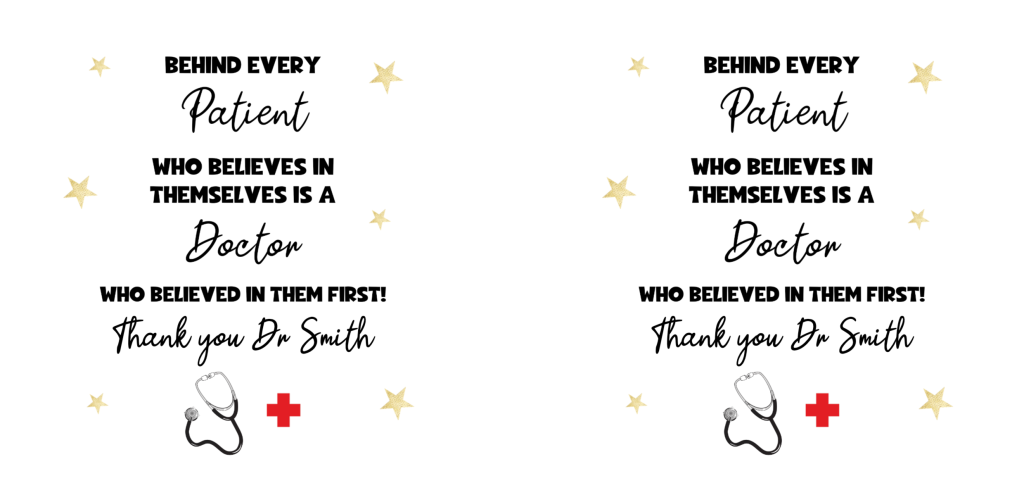 BEHIND EVERY
Patient
WHO BELIEVES IN
THEMSELVES IS A
Doctor
WHO BELIEVED IN THEM FIRST!
Thank you Dr Smith
BEHIND EVERY
Patient
WHO BELIEVES IN
THEMSELVES IS A
Doctor
WHO BELIEVED IN THEM FIRST!
Thank you Dr Smith